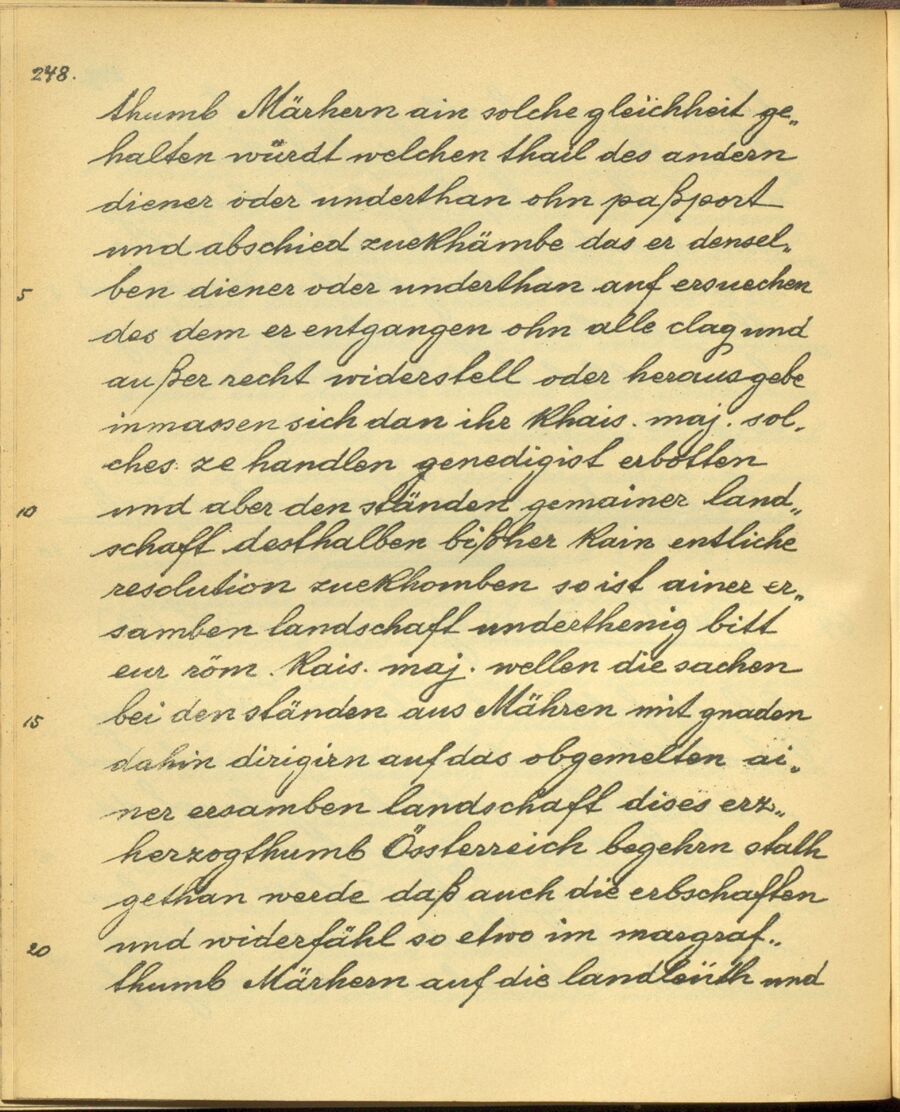 248.
thumb Märhern ain solche gleichheit ge„
halten würdt welchen thail des andern
diener oder underthan ohn paßport
und abschied zuekhämbe das er densel„
5 ben diener oder underthan auf ersuechen
des dem er entgangen ohn alle clag und
außer recht widerstell oder herausgebe
inmassen sich dan ihr khais. maj. sol„
ches ze handlen genedigist erbotten
10 und aber den ständen gemainer land„
schaft desthalben bißher kain entliche
resolution zuekhomben so ist ainer er„
samben landschaft underthenig bitt
eur röm. kais. maj. wellen die sachen
15 bei den ständen aus Mähren mit gnaden
dahin dirigirn auf das obgemelten ai„
ner ersamben landschaft dises erz„
herzogthumb Össterreich begehrn stath
gethan werde daß auch die erbschaften
20 und widerfähl so etwo im margraf„
thumb Märhern auf die landleüth und